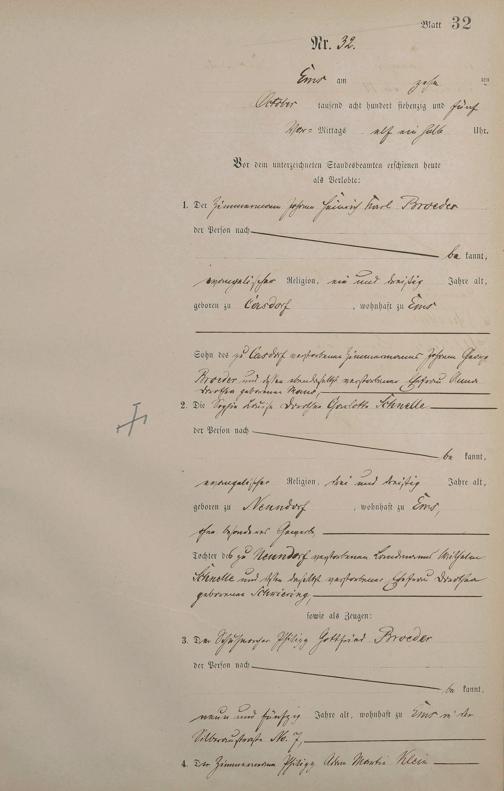 Blatt 32
Nr. 32.
Ems am zehn ten
October tausend acht hundert siebenzig und fünf
Vor= Mittags elf ein halb Uhr.
Vor dem unterzeichneten Standesbeamten erschienen heute
als Verlobte:
1. Der Zimmermann Johann Heinrich Karl Broeder
der Person nach
be kannt,
evangelischer Religion, ein und dreißig Jahre alt,
geboren zu Casdorf , wohnhaft zu Ems
Sohn des zu Casdorf verstorbenen Zimmermanns Johann Georg
Broeder und dessen ebendaselbst verstorbener Ehefrau Anna
Dorothea geborenen
2. Die Sophie Louise Dorothea Schnelle
der Person nach
be kannt,
evangelischer Religion, drei und dreißig Jahre alt,
geboren zu Nenndorf , wohnhaft zu Ems,
ohne besonderes Gewerbe,
Tochter des zu Nenndorf verstorbenen Landmanns Wilhelm
Schnelle und dessen daselbst verstorbener Ehefrau Dorothea
geborenen Schwiering,
sowie als Zeugen:
3. Der Schuhmacher Philipp Gottfried Broeder
der Person nach
be kannt,
neun und fünfzig Jahre alt, wohnhaft zu Ems in der
Silberaustraße No. 7,
4. Der Zimmermann Philipp Adam Martin Klein